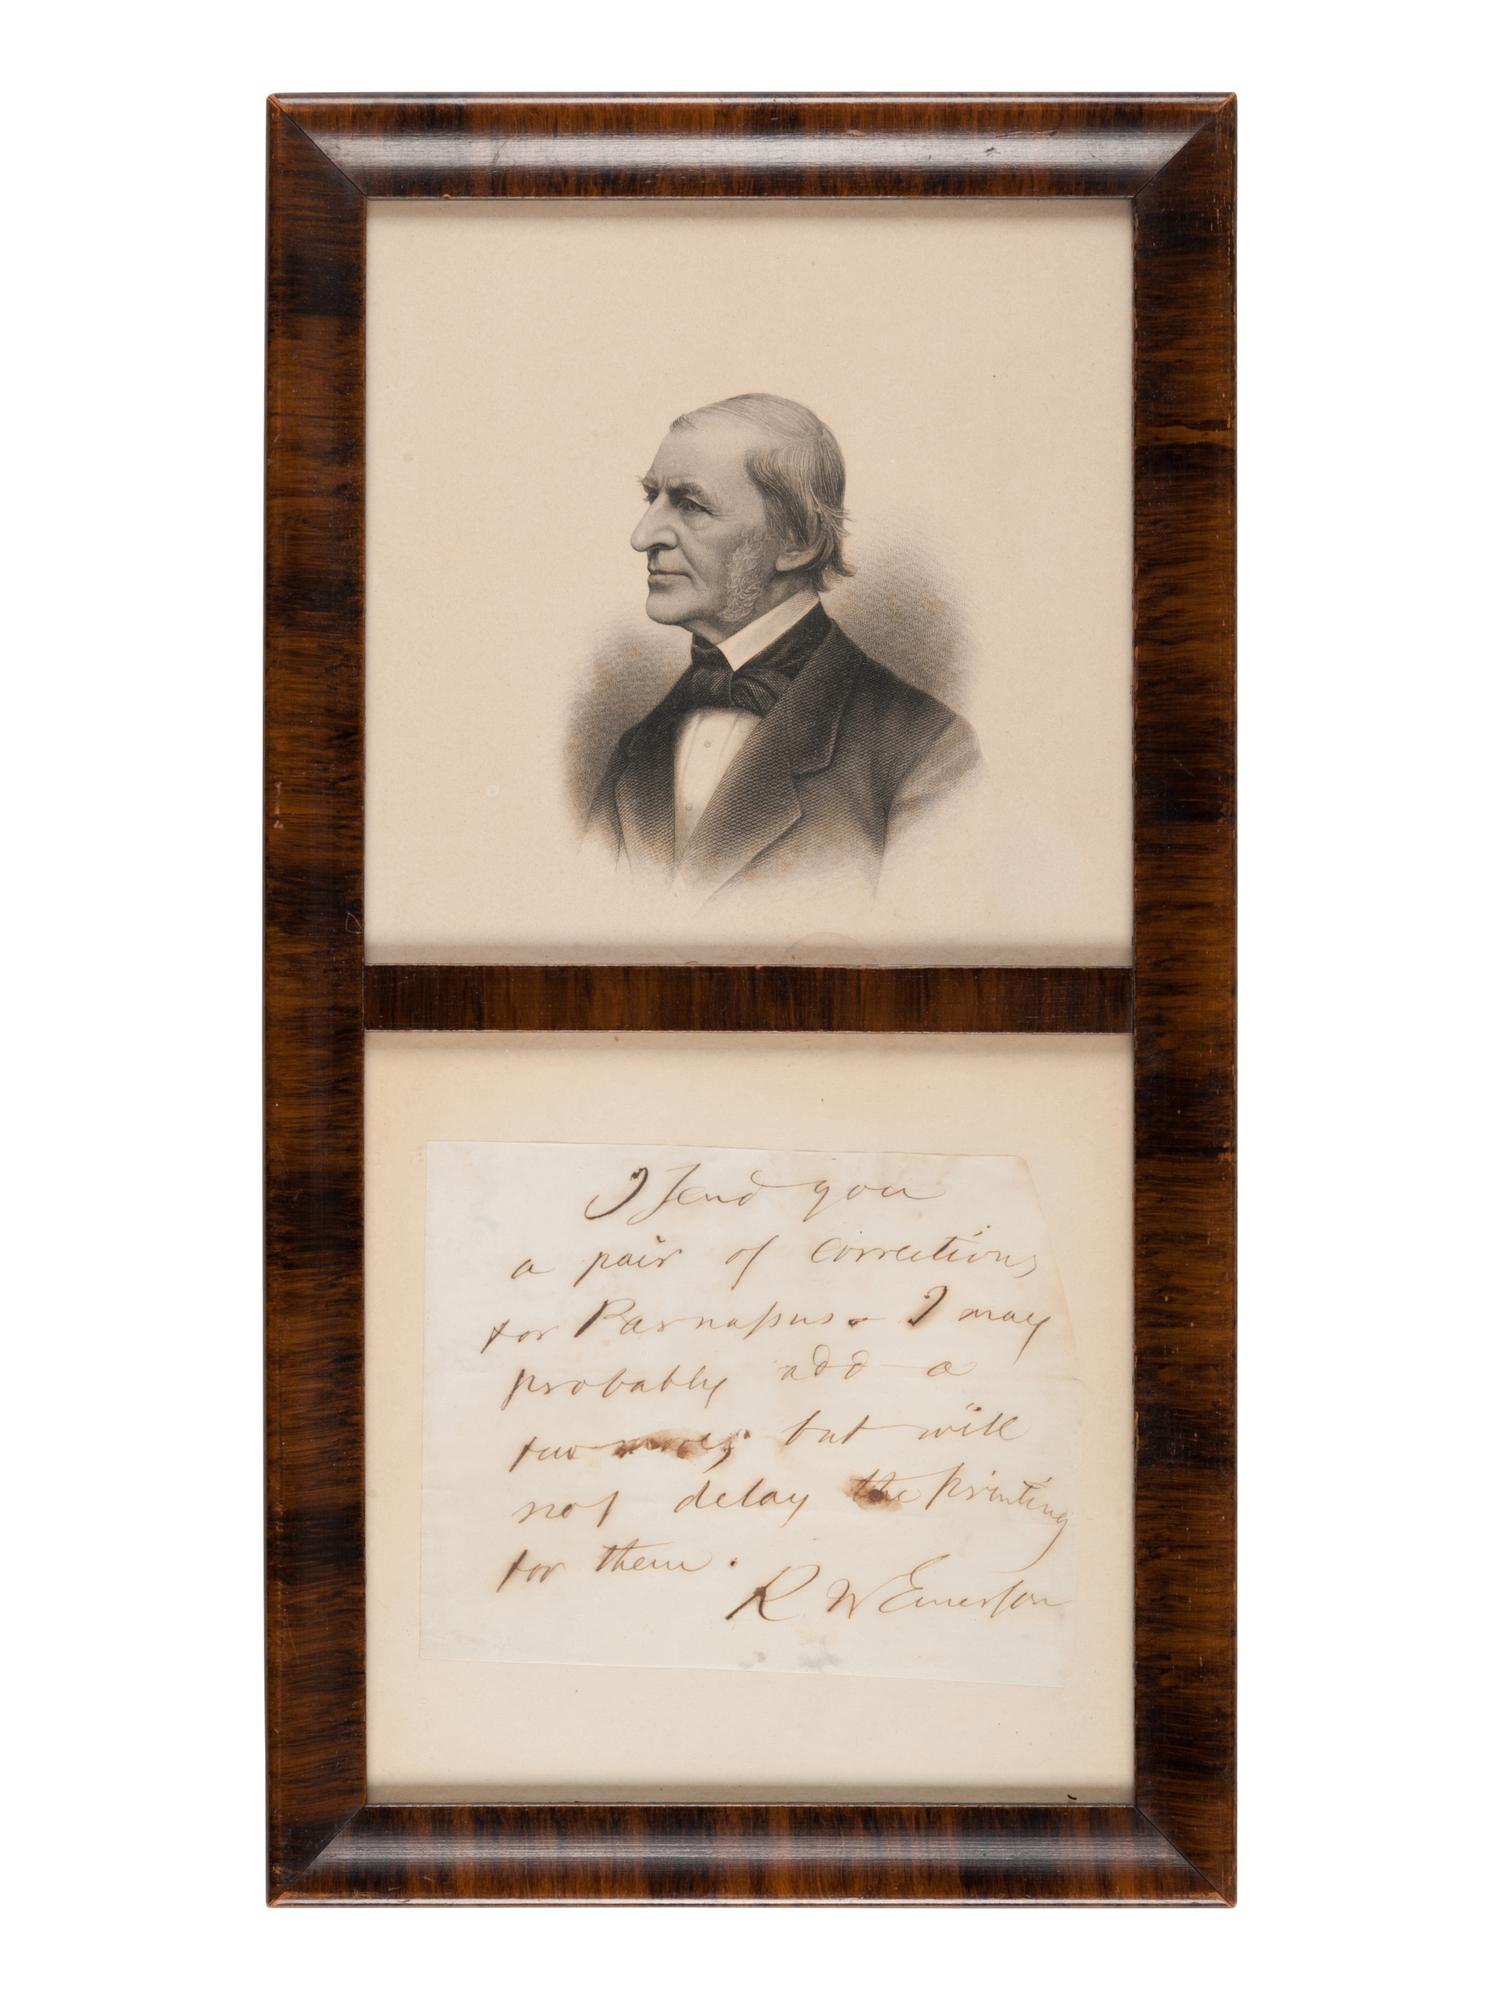 I send you
a pair of corrections
for Parnassus. I may
probably add a
two more; but will
not delay the printing
for them.
R W Emerson